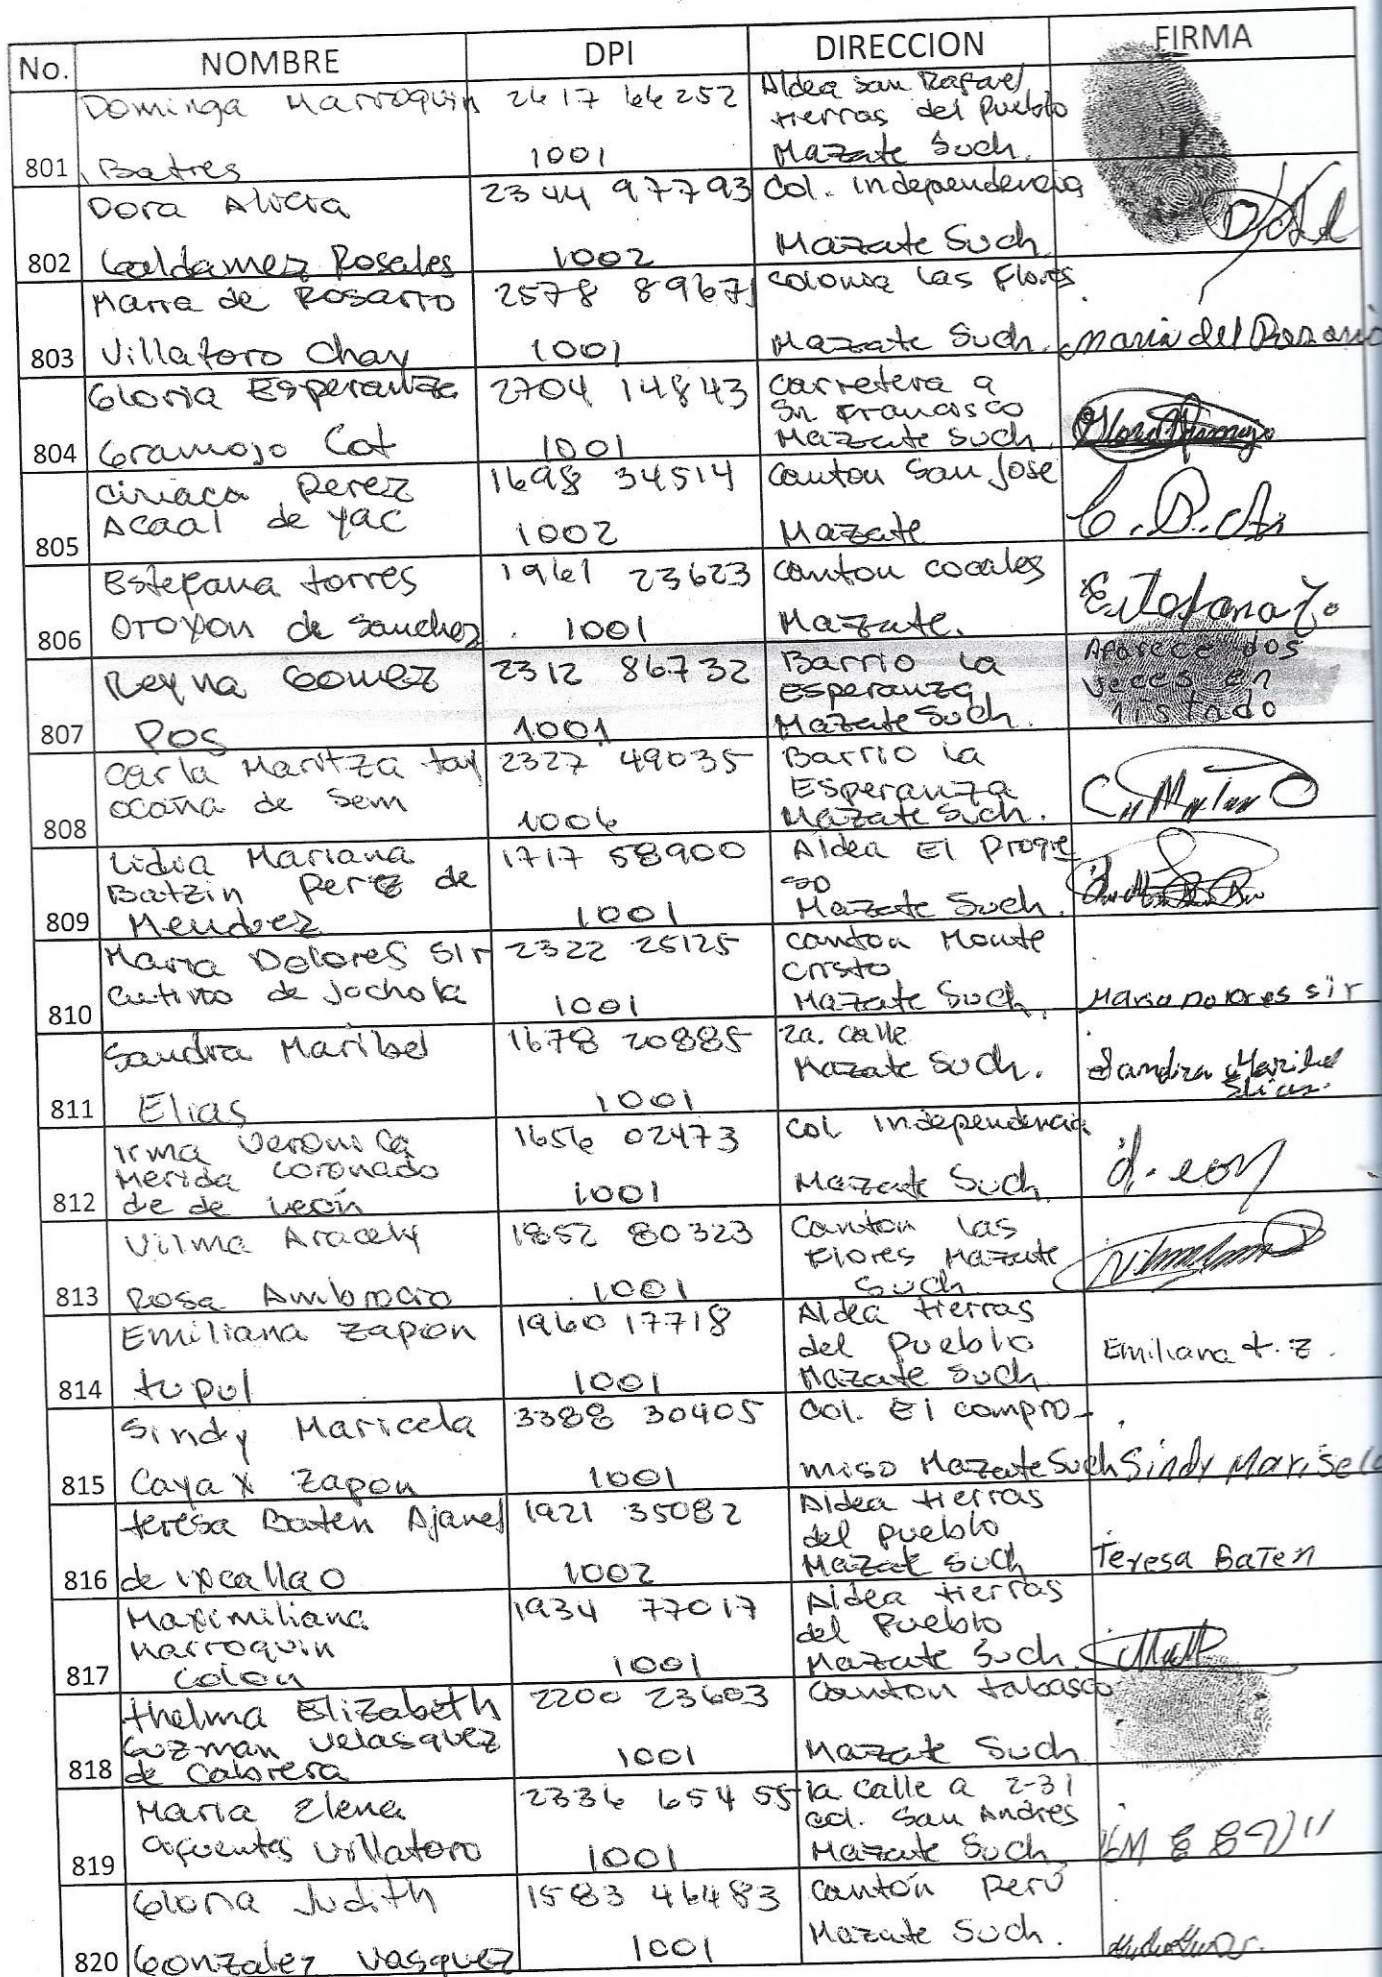 No. NOMBRE DPI DIRECCION FIRMA
801 Dominga Marroquin Batres 2617 66252 1001 Aldea San Rafael tierras del Pueblo Mazate Such.
802 Dora Alicia Galdamez Rosales 2344 97793 1002 Col. independencia Mazate Such
803 Maria de Rosario Villatoro Chay 2578 89671 1001 colonia las Flores Mazate Such. Maria del Rosario
804 Gloria Esperanza Gramojo Cot 2704 14843 1001 carretera a Sn Francisco Mazate Such
805 Ciriaca Perez Acaal de Yac 1698 34514 1002 Canton San Jose Mazate
806 Estefana torres Oroxon de Sanchez 1961 23623 1001 canton cocales Mazate.
807 Reyna Gomez Pos 2312 86732 1001 Barrio la Esperanza Mazate Such. Aparece dos veces en listado
808 Carla Maritza tay ocaña de Sem 2327 49035 1006 Barrio la Esperanza Mazate Such.
809 Lidia Mariana Batzin Perez de Mendoez 1717 58900 1001 Aldea El Progre so Mazate Such.
810 Maria Dolores Sir de Jochola 2322 25125 1001 canton Monte cristo Mazate Such. Maria Dolores sir
811 Sandra Maribel Elias 1678 20885 1001 2a. calle Mazate Such. Sandra Maribel Elias.
812 irma Veronica Merida coronado de de León 1656 02473 1001 col independencia Mazate Such
813 Vilma Aracely Rosa Ambrocio 1852 80323 1001 Canton las Flores Mazate Such
814 Emiliana Zapon tupul 1960 17718 1001 Aldea tierras del Pueblo Mazate Such Emiliana t. z.
815 Sindy Maricela Cayax Zapon 3388 30405 1001 Col. El compro- miso Mazate Such Sindy Marisela
816 teresa Baten Ajanel de ixcallao 1921 35082 1002 Aldea tierras del pueblo Mazate Such Teresa Baten
817 Maximiliana Marroquin Colon 1934 77017 1001 Aldea tierras del Pueblo Mazate Such.
818 thelma Elizabeth Guzman Velasquez de Cabrera 2200 23603 1001 Canton tabasco Mazate Such
819 Maria Elena cifuentes Villatoro 2336 65455 1001 1a calle a 2-31 col. San Andres Mazate Such
820 Gloria Judith Gonzalez Vasquez 1583 46483 1001 cantón Perú Mazate Such.